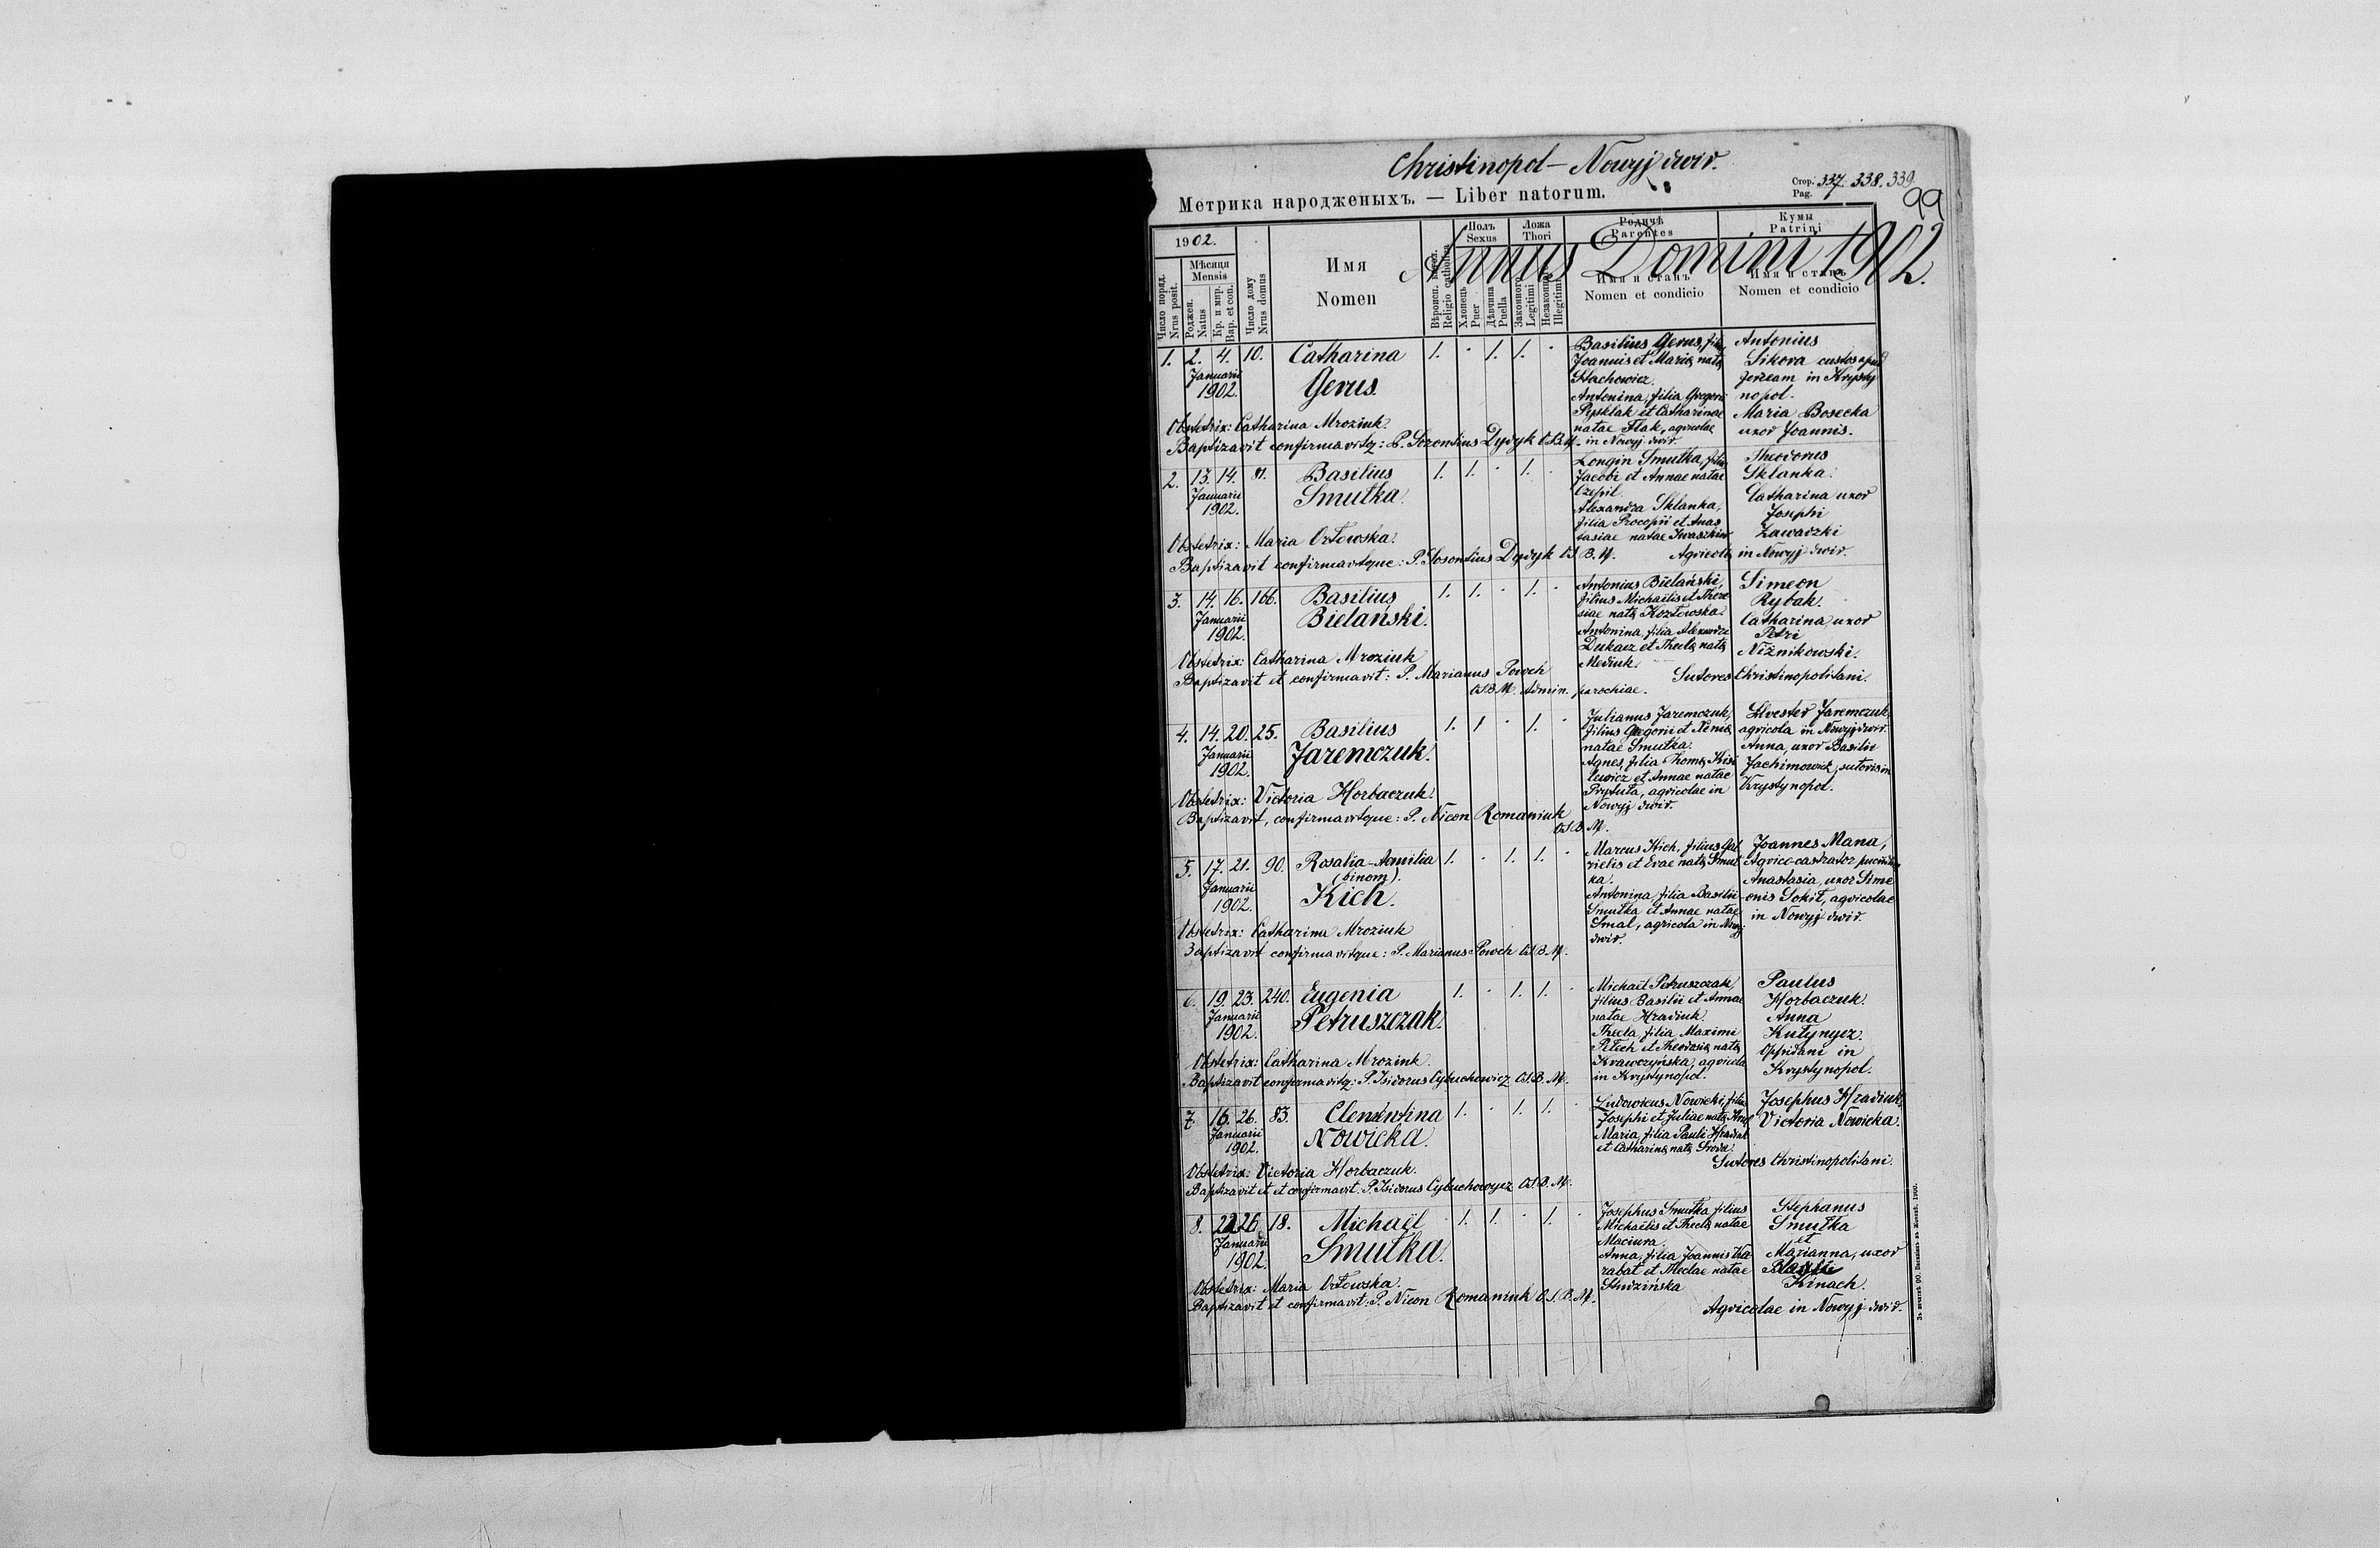 Christinopol — Nowyj dwir.
Метрика народженыхъ. — Liber natorum.
Стор. Pag. 337. 338. 339.
99
Annus Domini 1902.
1902.
Число поряд. Nrus posit.
Мѣсяця Mensis
Роджен. Natus
Кр. и мир. Bap. et con.
Число дому Nrus domus
Имя Nomen
Religio catholica
Полъ Sexus
Хлопець Puer
Дѣвчина Puella
Ложа Thori
Законного Legitimi
Illegitimi
Родичѣ Parentes
Имя и станъ Nomen et condicio
Кумы Patrini
Имя и станъ Nomen et condicio
1. 2. 4. 10. Catharina 1. · 1. 1. ·
Januarii Gerus.
1902.
Basilius Gerus, fil.
Joannis et Mariae natae
Stachowicz.
Antonina, filia Gregorii
Pypsklak et Catharinae
natae Flak, agricolae
in Nowyj dwir.
Antonius
Sikora custos apud
in Krysty
nopol.
Maria Bosecka
uxor Joannis.
Obstetrix: Catharina Mroziuk.
Baptizavit confirmavitq: P. Sozontius Dydyk O.S.B.M.
2. 13. 14. 81. Basilius 1. 1. · 1. ·
Januarii Smutka.
1902.
Longin Smutka, filius
Jacobi et Annae natae
Czepil.
Alexandra Sklanka,
filia Procopii et Anas
tasiae natae Iwaszkiw
Theodorus
Sklanka.
Catharina uxor
Josephi
Zawadzki
Agricolae in Nowyj dwir.
Obstetrix: Maria Orłowska.
Baptizavit confirmavitque: P. Sosontius Dydyk O.S.B.M.
3. 14. 16. 166. Basilius 1. 1. · 1. ·
Januarii Bielański.
1902.
Antonius Bielański,
filius Michaëlis et There
siae natae Kozłowska.
Antonina, filia Alexandri
Dukacz et Theclae natae
Mediuk.
Simeon
Rybak.
Catharina, uxor
Petri
Niżnikowski.
Sutores Christinopolitani.
Obstetrix: Catharina Mroziuk
Baptizavit et confirmavit: P. Marianus Powch
O.S.B.M. Admin. parochiae.
4. 14. 20. 25. Basilius 1. 1 · 1. ·
Januarii Jaremczuk.
1902.
Julianus Jaremczuk,
filius Gregorii et Xeniae
natae Smutka.
Agnes, filia Thomae Kisi
lewicz et Annae natae
Prytuła, agricolae in
Nowyj dwir.
Silvester Jaremczuk,
agricola in Nowyj dwir.
Anna, uxor Basilii
Jachimowicz, sutoris in
Krystynopol.
Obstetrix: Victoria Horbaczuk.
Baptizavit, confirmavitque: P. Nicon Romaniuk
O.S.B.M.
5. 17. 21. 90. Rosalia-Aemilia 1. · 1. 1. ·
Januarii (binom).
1902. Kich.
Marcus Kich, filius Gab
rielis et Evae natae Smut
ka.
Antonina, filia Basilii
Smutka et Annae natae
Smal, agricola in Nowyj
dwir.
Joannes Mana,
Agrico-castrator
Anastasia, uxor Sime
onis Sokił, agricolae
in Nowyj dwir.
Obstetrix: Catharina Mroziuk
Baptizavit confirmavitque: P. Marianus Powch O.S.B.M.
6. 19. 23. 240. Eugenia 1. · 1. 1. ·
Januarii Petruszczak.
1902.
Michaël Petruszczak,
filius Basilii et Annae
natae Hradiuk.
Thecla, filia Maximi
Pełech et Theodosiae natae
Krawczyńska, agricolae
in Krystynopol.
Paulus
Horbaczuk.
Anna
Kutynycz.
Oppidani in
Krystynopol.
Obstetrix: Catharina Mroziuk.
Baptizavit confirmavitq: P. Isidorus Cybuchowicz O.S.B.M.
7. 16. 26. 83. Clementina 1. · 1. 1. ·
Januarii Nowicka.
1902.
Ludowicus Nowicki, filius
Josephi et Juliae natae
Maria, filia Pauli Hradiuk
et Catharinae natae Środa.
Josephus Hradiuk,
Victoria Nowicka.
Sutores Christinopolitani.
Obstetrix: Victoria Horbaczuk.
Baptizavit et et confirmavit: P. Isidorus Cybuchowycz O.S.B.M.
8. 22. 26. 18. Michaël 1. 1. · 1. ·
Januarii Smutka.
1902.
Josephus Smutka, filius
Michaëlis et Theclae natae
Maciura.
Anna, filia Joannis Ka
rabat et Theclae natae
Studzińska
Stephanus
Smutka
et
Marianna, uxor
Kinach.
Agricolae in Nowyj dwir.
Obstetrix: Maria Orłowska.
Baptizavit et confirmavit: P. Nicon Romaniuk O.S.B.M.